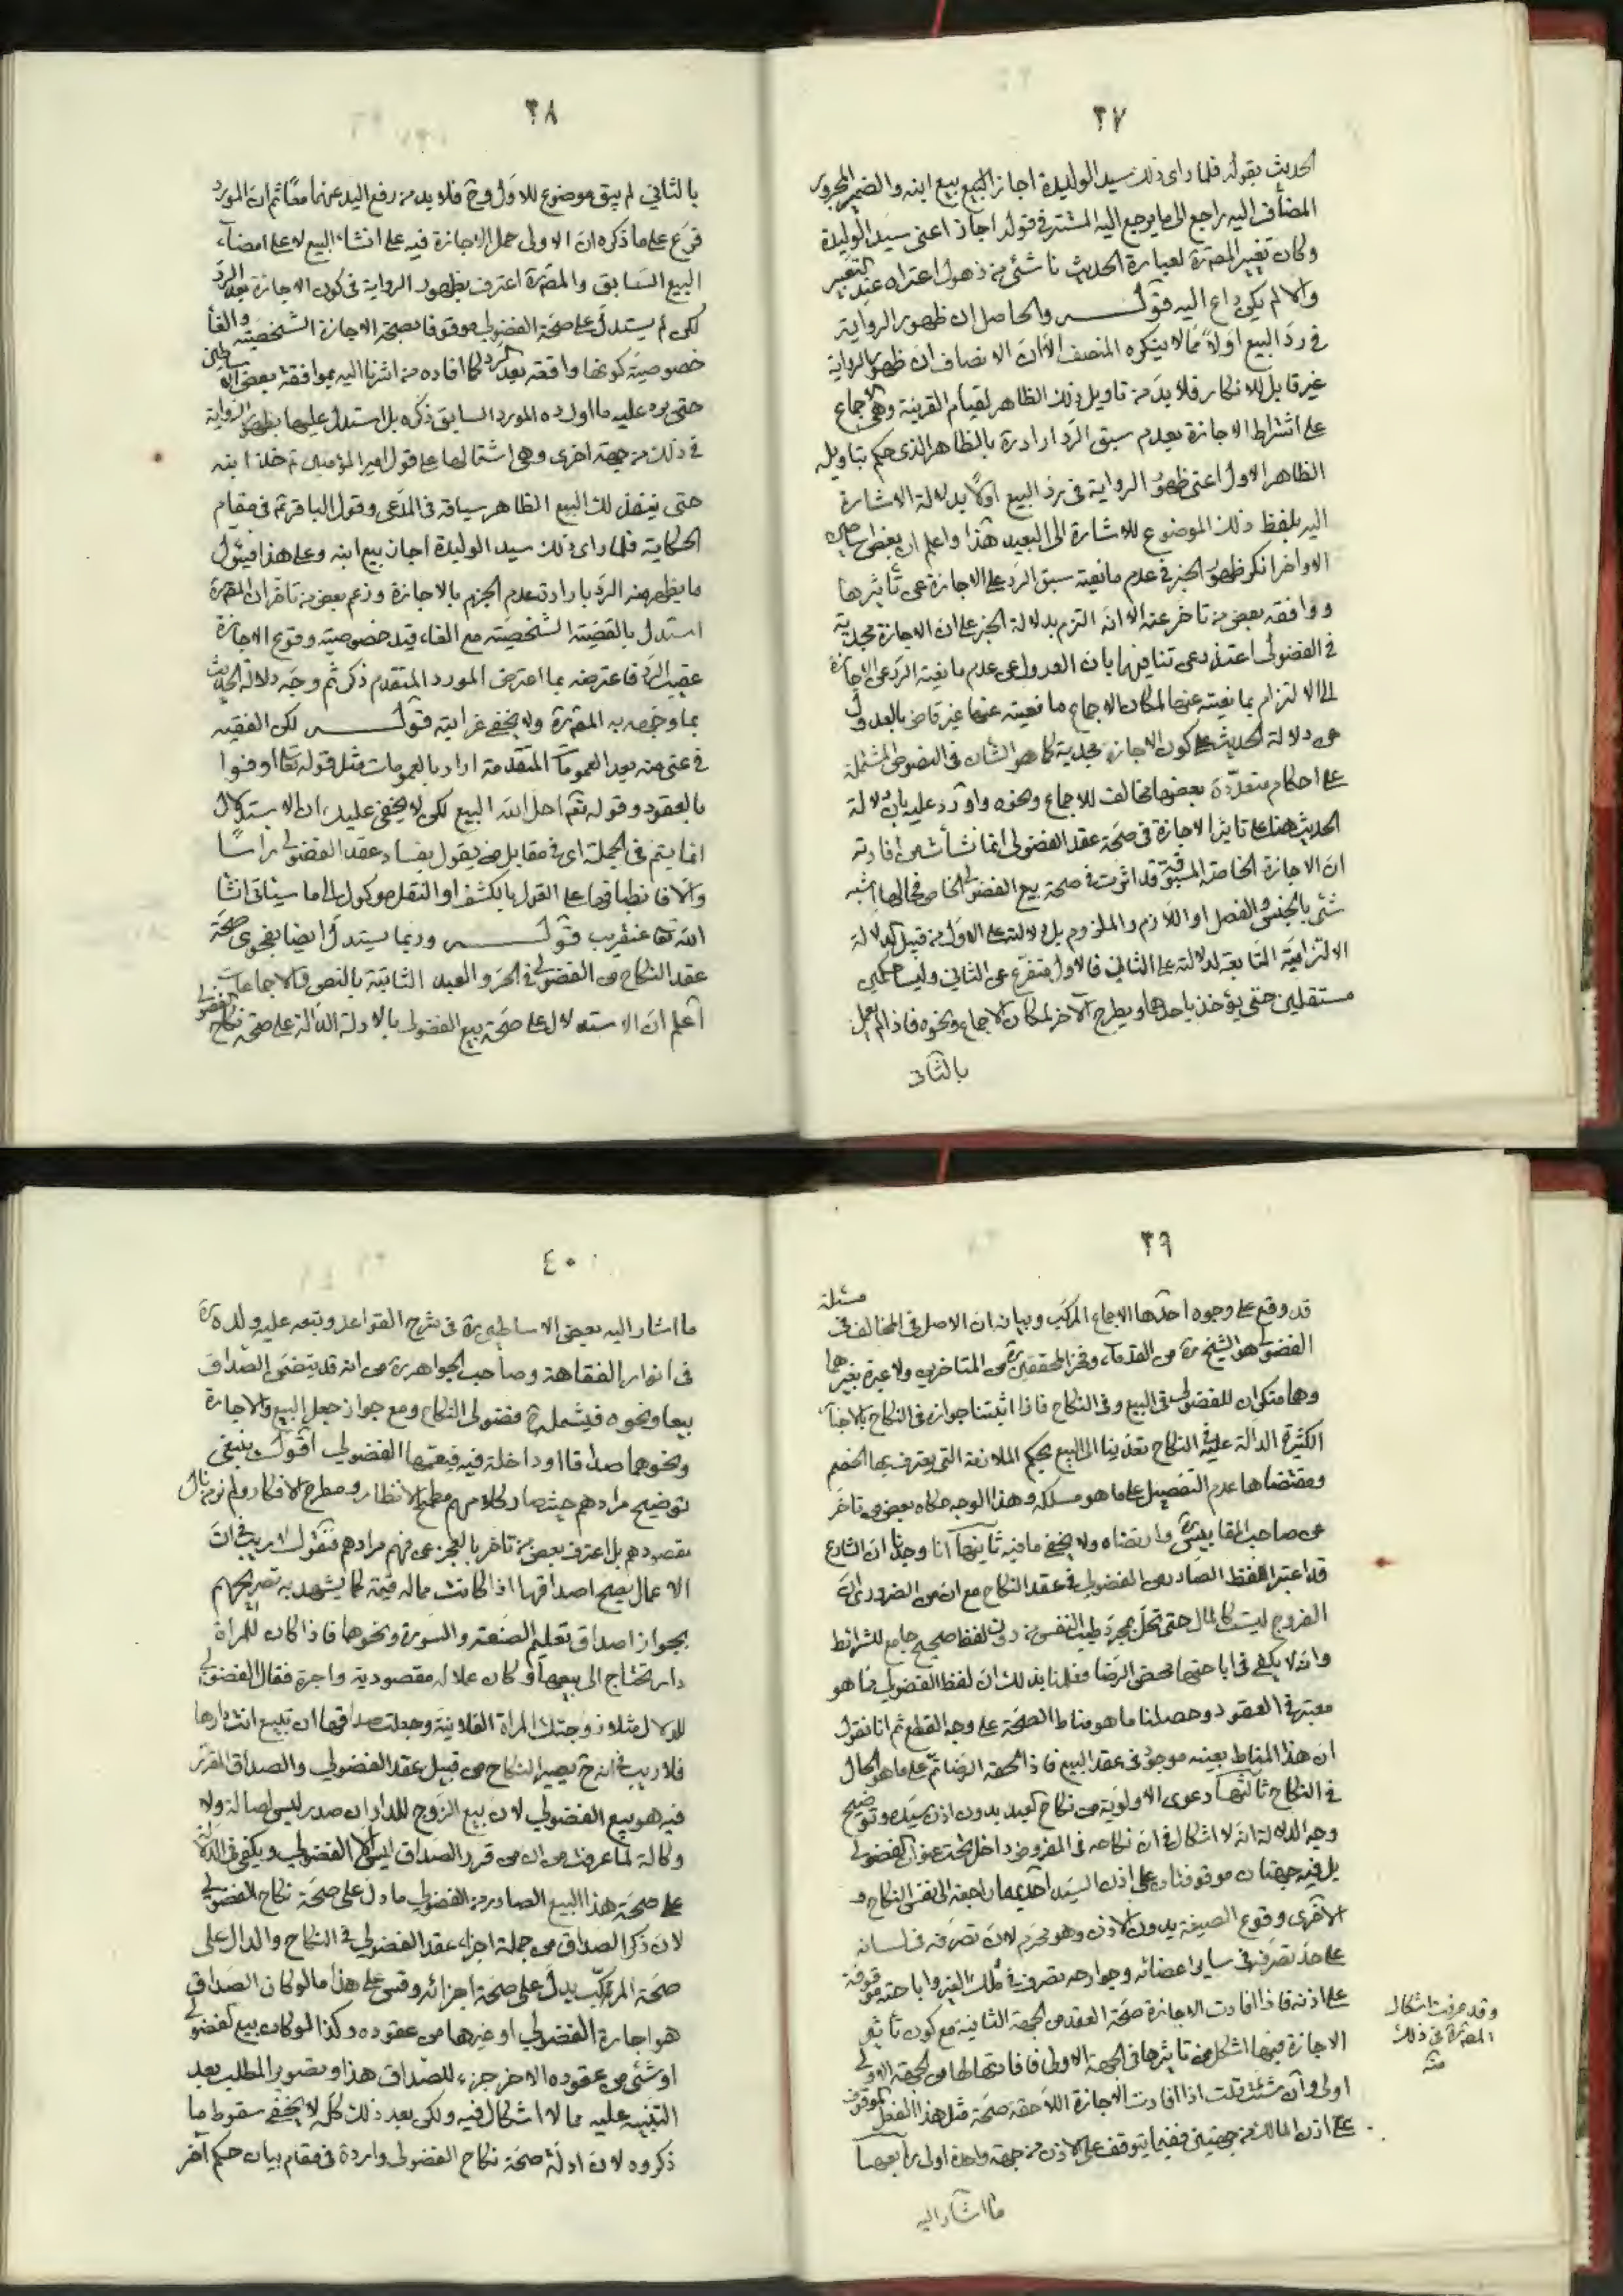 ٣٧
الحديث بقوله فلما راى ذلك سيد الوليدة اجاز البيع بيع ابنه والضمير المجرور
المضاف اليه راجع الى ما يرجع اليه المستتر فى قوله اجاز اعنى سيد الوليدة
وكان تغيير المص ره لعبارة الحديث ناشئ من ذهول اعتراه عند التغيير
والا لم يكن داع اليه قوله والحاصل ان ظهور الرواية
فى رد البيع اولا مما لا ينكره المنصف الا ان الانصاف ان ظهور الرواية
غير قابل للانكار فلا بد من تاويل ذلك الظاهر لقيام القرينة وهى الاجماع
على اشتراط الاجازة بعدم سبق الرد اراد ره بالظاهر الذى حكم بتاويله
الظاهر الاول اعنى ظهور الرواية فى رد البيع اولا بدلالة الاشارة
اليه بلفظ ذلك الموضوع للاشارة الى البعيد هذا واعلم ان بعض
الاواخر انكر ظهور الخبر فى عدم مانعية سبق الرد على الاجازة عن تأثيرها
ووافقه بعض من تاخر عنه الا انه التزم بدلالة الخبر على ان الاجازة مجدية
فى الفضولى اعتذر عن تنافيهما بان العدول عن عدم مانعية الرد عن الاجازة
الى الالتزام بمانعيته عنها لمكان الاجماع مانعيته عنها غير قاض بالعدول
عن دلالة الحديث على كون الاجازة مجدية كما هو الشأن فى النصوص المشتملة
على احكام متعددة بعضها مخالف للاجماع ونحوه واورد عليه بان دلالة
الحديث هنا على تاثير الاجازة فى صحة عقد الفضولى انما نشأت من افادته
ان الاجازة الخاصة المسبوقة قد اثرت فى صحة بيع الفضولى الخاص فحالها اشبه
شئ بالجنس والفصل او اللازم والملزوم بل دلالته على الاول من قبيل الدلالة
الالتزامية التابعة لدلالته على الثانى فالاول متفرع عن الثانى وليسا حكمين
مستقلين حتى يؤخذ باحدهما ويطرح الآخر لمكان الاجماع ونحوه فاذا لم يعمل
بالثانى
٣٨
بالثانى لم يبق موضوع للاول وح فلا بد من رفع اليد عنهما معا ثم ان المورد
فرع على ما ذكره ان الاولى حمل الاجازة فيه على انشاء البيع لا على امضاء
البيع السابق والمص ره اعترف بظهور الرواية فى كون الاجازة بعد الرد
لكن لم يستدل على صحة الفضولى موقوفا بصحة الاجازة الشخصية والغاء
خصوصية كونها واقعة بعد الرد كما افاده من اشرنا اليه بموافقة بعض الاساطين
حتى يرد عليه ما اورده المورد السابق ذكره بل استدل عليها بظهور الرواية
فى ذلك من جهة اخرى وهى اشتمالها على قول امير المؤمنين ع خذ ابنه
حتى ينفذ لك البيع الظاهر سياقه فى المدعى وقول الباقر ع فى مقام
الحكاية فلما راى ذلك سيد الوليدة اجاز بيع ابنه وعلى هذا فيئول
ما يظهر منه الرد بارادة عدم الجزم بالاجازة وزعم بعض من تاخر ان المص ره
استدل بالقضية الشخصية مع الغاء قيد خصوصية وقوع الاجازة
عقيب الرد فاعترضه بما اعترض المورد المتقدم ذكره ثم وجه دلالة الحديث
بما وجهه به المص ره ولا يخفى غرابته قوله لكن الفقيه
فى غنى منه بعد العمومات المتقدمة اراد بالعمومات مثل قوله تعالى اوفوا
بالعقود وقوله تعالى احل الله البيع لكن لا يخفى عليك ان الاستدلال
انما يتم فى الجملة اى فى مقابل من يقول بفساد عقد الفضولى راسا
والا فانطباقها على القول بالكشف او النقل موكول الى ما سيتلى انشا
الله تعا عنقريب قوله وربما يستدل ايضا بفحوى صحة
عقد النكاح من الفضولى فى الحر والعبد الثابتة بالنص والاجماعات
اعلم ان الاستدلال على صحة بيع الفضولى بالادلة الدالة على صحة نكاح الفضولى
٣٩
قد وقع على وجوه احدها الاجماع المركب وبيانه ان الاصل فى المخالف فى مسئلة
الفضولى هو الشيخ ره من القدماء وفخر المحققين ره من المتاخرين ولا عبرة بغيرهما
وهما منكران للفضولى فى البيع وفى النكاح فاذا اثبتنا جوازه فى النكاح بالاخبار
الكثيرة الدالة عليه فى النكاح تعدينا الى البيع بحكم الملازمة التى يعترف بها الخصم
ومقتضاها عدم التفصيل على ما هو مسلكه وهذا الوجه حكاه بعض من تاخر
عن صاحب المقابيس ره وارتضاه ولا يخفى ما فيه ثانيها انا وجدنا ان الشارع
قد اعتبر اللفظ الصادر من الفضولى فى عقد النكاح مع ان من الضرورى ان
الفروج ليست كالمال حتى تحل بمجرد طيب النفس من دون لفظ صحيح جامع للشرائط
وانه لا يكفى فى اباحتها محض الرضا فعلمنا بذلك ان لفظ الفضولى مما هو
معتبر فى العقود وحصلنا ما هو مناط الصحة على وجه القطع ثم انا نقول
ان هذا المناط بعينه موجود فى عقد البيع فاذا لحقه الرضا تم على ما هو الحال
فى النكاح ثالثها دعوى الاولوية من نكاح العبد بدون اذن سيده وتوضيح
وجه الدلالة انه لا اشكال فى ان نكاحه فى المفروض داخل تحت عنوان الفضولى
بل فيه جهتان موقوفتان على اذن السيد احديهما راجعة الى نفس النكاح و
الاخرى وقوع الصيغة بدون الاذن وهو محرم لان تصرفه فى لسانه
على حد تصرفه فى ساير اعضائه وجوارحه تصرف فى ملك الغير واباحته موقوفة
على اذنه فاذا افادت الاجازة صحة العقد من الجهة الثانية مع كون تأثير
الاجازة فيها اشكل من تاثيرها فى الجهة الاولى فافادتها لها من الجهة الاولى
اولى وان شئت قلت اذا افادت الاجازة اللاحقة صحة مثل هذا الفعل الموقوف
على اذن المالك من جهتين ففيما يتوقف على الاذن من جهة واحدة اولى رابعها
وقد عرفت اشكال
المص ره فى ذلك
منه
ما اشار اليه
٤٠
ما اشار اليه بعض الاساطين ره فى شرح القواعد وتبعه عليه ولده ره
فى انوار الفقاهة وصاحب الجواهر ره من انه قد يتضمن الصداق
بيعا ونحوه فيشمله ح فضولى النكاح ومع جواز جعل البيع والاجارة
ونحوهما صداقا او داخلة فيه فيعمها الفضولى اقول ينبغى
توضيح مرادهم حيث صار كلامهم مطمح الانظار ومطرح الافكار ولم نر من نال
مقصودهم بل اعترف بعض من تاخر بالعجز عن فهم مرادهم فنقول لا ريب فى ان
الاعمال يصح اصداقها اذا كانت ماله قيمة كما يشهد به تصريحهم
بجواز اصداق تعليم الصنعة والسورة ونحوهما فاذا كان للمراة
دار تحتاج الى بيعها وكان علال مقصودية واجرة فقال الفضولى
للدلال مثلا زوجتك المراة الفلانية وجعلت صداقها ان تبيع انت دارها
فلا ريب فى انه ح يصير النكاح من قبيل عقد الفضولى والصداق المقرر
فيه هو بيع الفضولى لان بيع الزوج للدار ان صدر ليس اصالة ولا
وكالة لما عرفت من ان من قرر الصداق ليس الا الفضولى ويكفى فى الدلالة
على صحة هذا البيع الصادر من الفضولى ما دل على صحة نكاح الفضولى
لان ذكر الصداق من جملة اجزاء عقد الفضولى فى النكاح والدال على
صحة المركب يدل على صحة اجزائه وقس على هذا ما لو كان الصداق
هو اجارة الفضولى او غيرها من عقوده وكذا لو كان بيع الفضولى
او شئ من عقوده الاخر جزء للصداق هذا وتصوير المطلب بعد
التنبيه عليه مما لا اشكال فيه ولكن بعد ذلك كله لا يخفى سقوط ما
ذكروه لان ادلة صحة نكاح الفضولى واردة فى مقام بيان حكم آخر